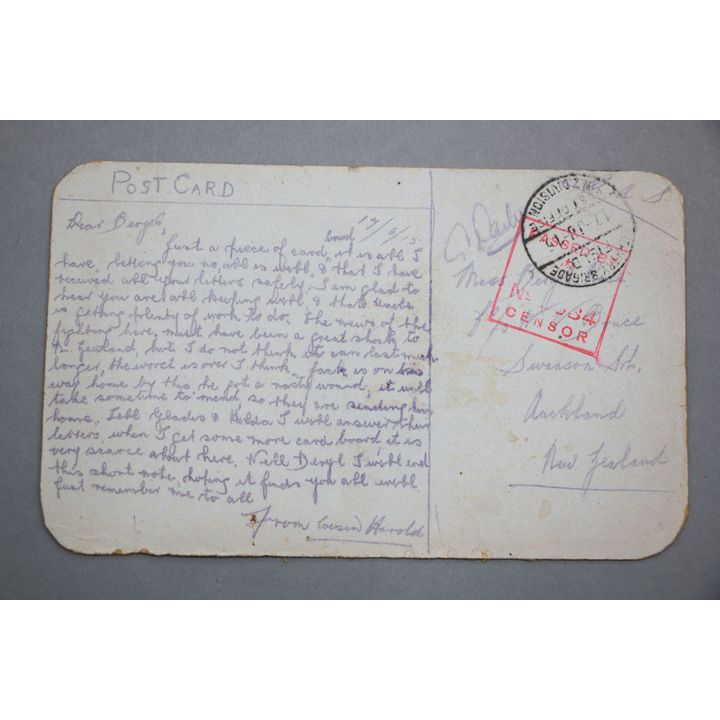 POST CARD
17/6/15
Dear Beryl,
Just a piece of card board, it is all I
have. letting you no, all is well, & that I have
received all your letters safely. I am glad to
hear you are all keeping well & that Uncle
is getting plenty of work to do. The news of the
fighting here, must have been a great shock to
N. Zealand, but I do not think it can last much
longer, the worst is over I think, Jack is on his
way home by this, he got a nasty wound, it will
take sometime to mend, so they are sending him
home. Tell Gladis & Hilda I will answer their
letters, when I get some more card board, it is
very scarce about here. Well Beryl I will end
this short note, hoping it finds you all well
Just remember me to all
From Cousin Harold
Miss
Swanson St.,
Auckland
New Zealand
N.Z. DIVISION
BRIGADE
PASSED BY
No 34
CENSOR